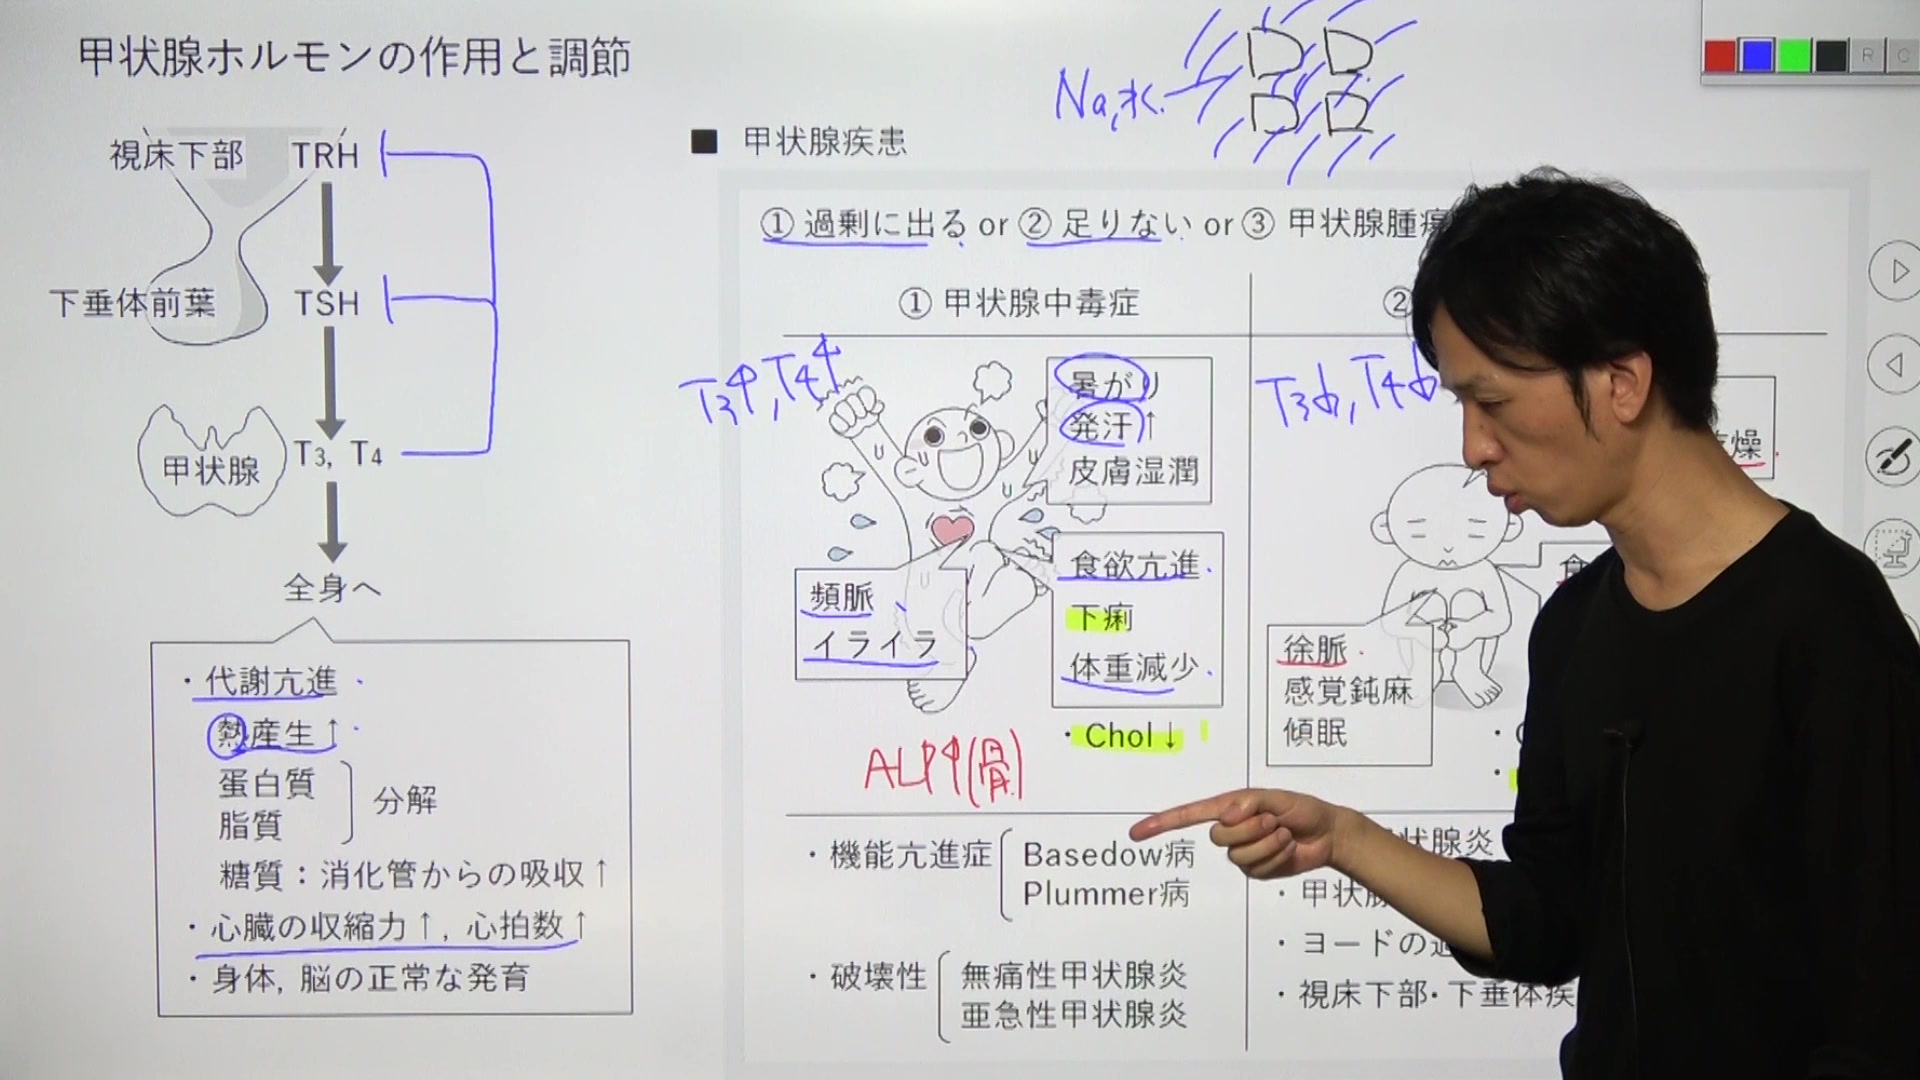 甲状腺ホルモンの作用と調節
視床下部 TRH
下垂体前葉 TSH
甲状腺 T3, T4
全身へ
・代謝亢進
熱産生↑
蛋白質
脂質
分解
糖質：消化管からの吸収↑
・心臓の収縮力↑, 心拍数↑
・身体, 脳の正常な発育
Na,水
■ 甲状腺疾患
① 過剰に出る or ② 足りない or ③ 甲状腺腫瘍
① 甲状腺中毒症
T3↑,T4↑
暑がり
発汗↑
皮膚湿潤
頻脈
イライラ
食欲亢進
下痢
体重減少
・Chol↓
ALP↑(骨)
・機能亢進症
Basedow病
Plummer病
・破壊性
無痛性甲状腺炎
亜急性甲状腺炎
②
T3↓,T4↓
燥
徐脈
感覚鈍麻
傾眠
状腺炎
・甲状腺
・ヨードの過
・視床下部・下垂体疾
R C